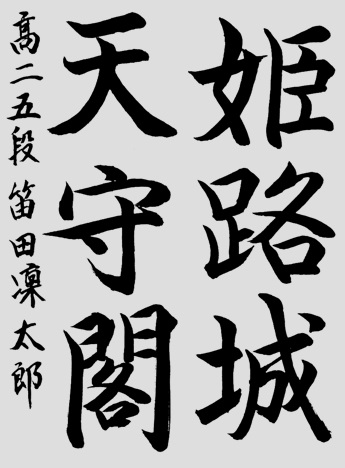 姫路城
天守閣
高二五段 笛田凜太郎